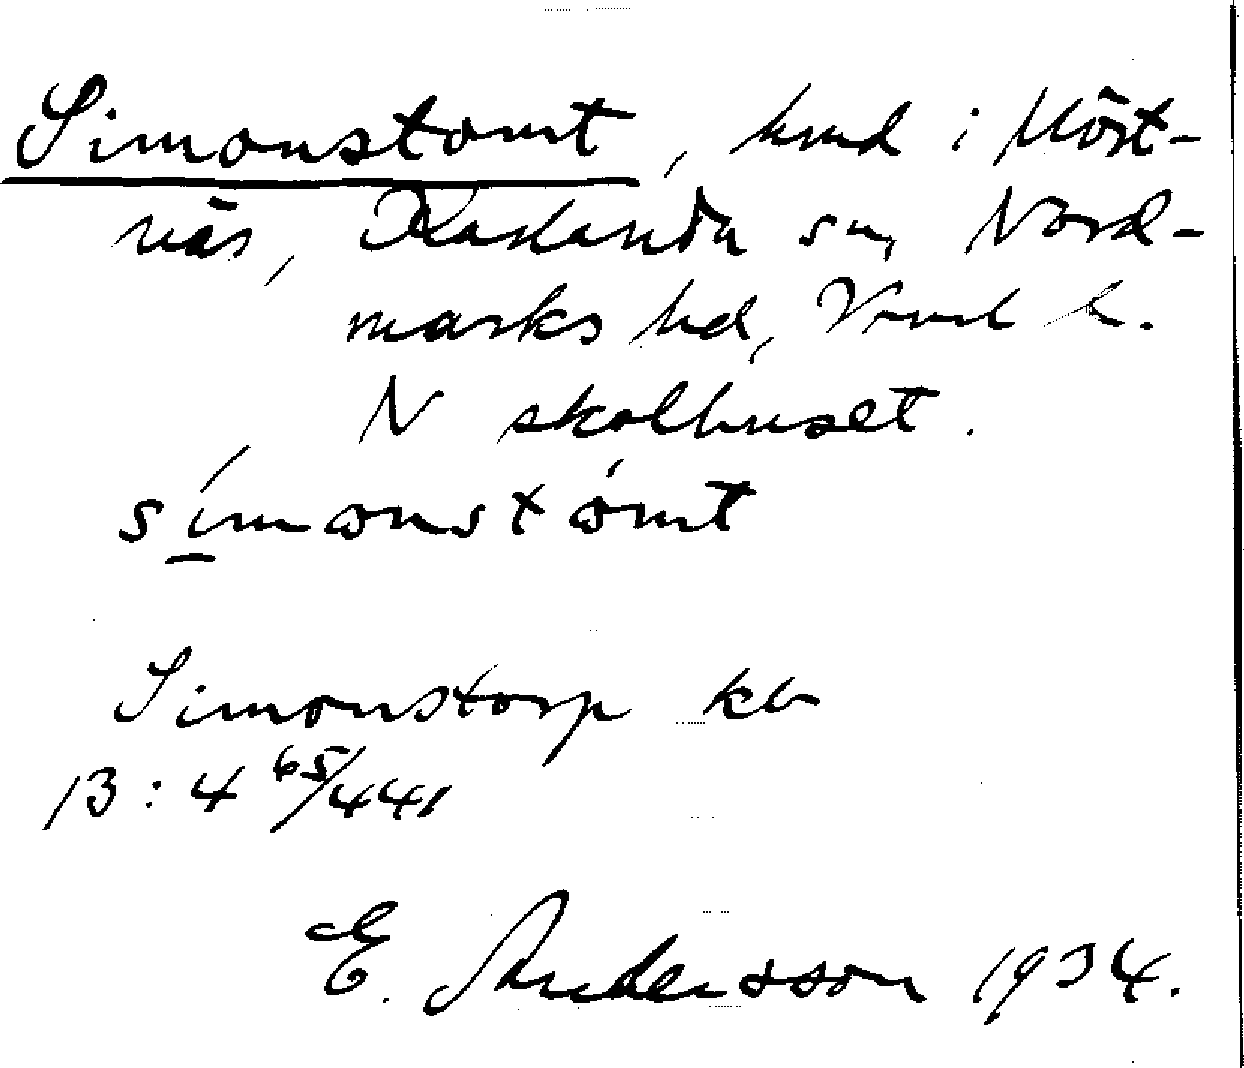 Simonstomt, hmd i Möst-
näs, Karlanda sn, Nord-
marks hd, Vrml l.
N skolhuset.
simonstomt
Simonstorp kb
13:4 65/441
E. Andersson 1934.